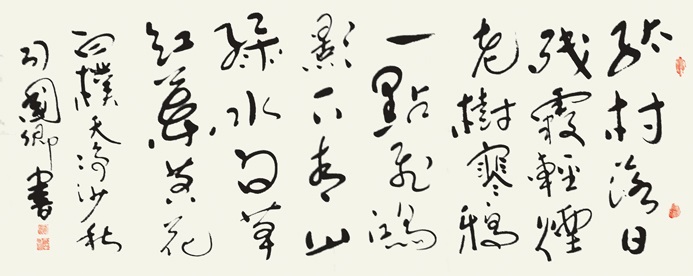 孤村落日
殘霞輕煙
老樹寒鴉
一點飛鴻
影下青山
綠水白草
紅葉黃花
白樸天淨沙秋
國卿書